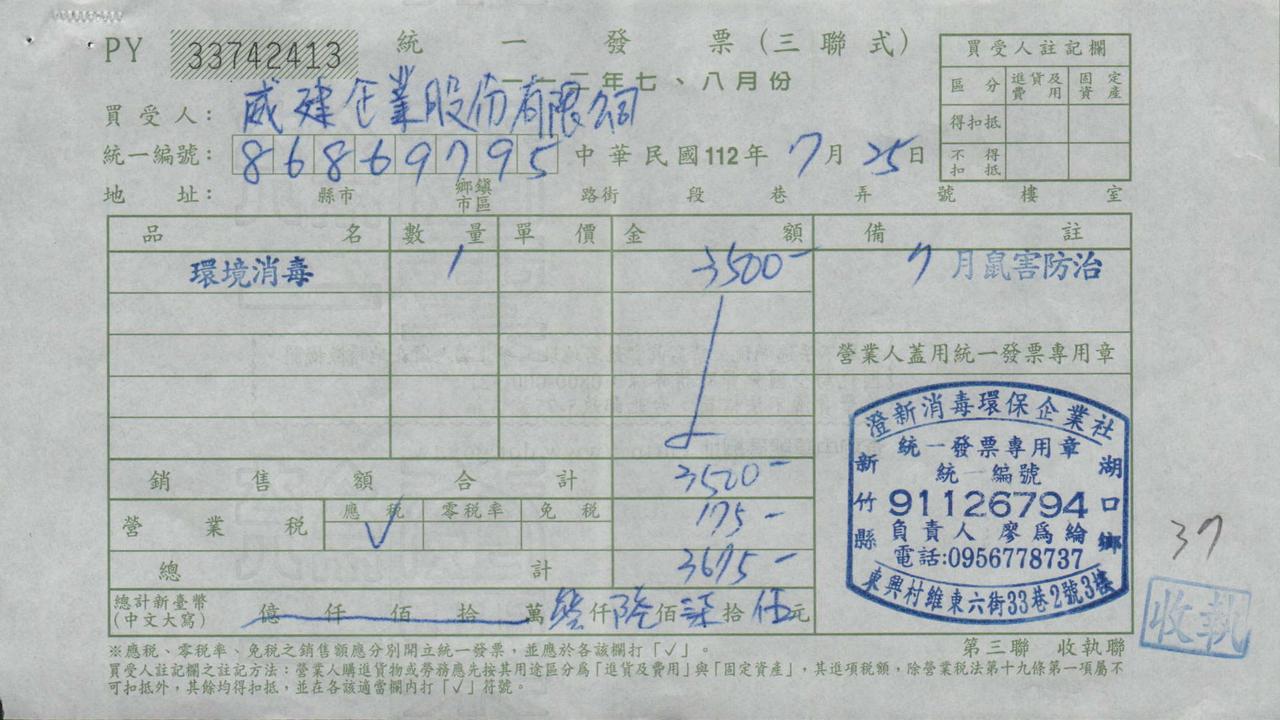 PY 33742413 統一發票(三聯式)
一一二年七、八月份
買受人: 威建企業股份有限公司
統一編號: 86869795 中華民國112年7月25日
地址: 縣市 鄉鎮市區 路街 段 巷 弄 號 樓 室
買受人註記欄
區分 進貨及費用 固定資產
得扣抵
不得扣抵
品名 數量 單價 金額 備註
環境消毒 1 3500- 7月鼠害防治
營業人蓋用統一發票專用章
銷售額合計 3500-
營業稅 應稅 零稅率 免稅 175-
√
總計 3675-
總計新臺幣(中文大寫) 億仟佰拾萬叁仟陸佰柒拾伍元
澄新消毒環保企業社
統一發票專用章
統一編號
91126794
負責人 廖爲綸
電話:0956778737
新竹縣
湖口鄉
東興村維東六街33巷2號3樓
37
收執
※應稅、零稅率、免稅之銷售額應分別開立統一發票,並應於各該欄打「√」。
第三聯 收執聯
買受人註記欄之註記方法:營業人購進貨物或勞務應先按其用途區分為「進貨及費用」與「固定資產」,其進項稅額,除營業稅法第十九條第一項屬不
可扣抵外,其餘均得扣抵,並在各該適當欄內打「√」符號。